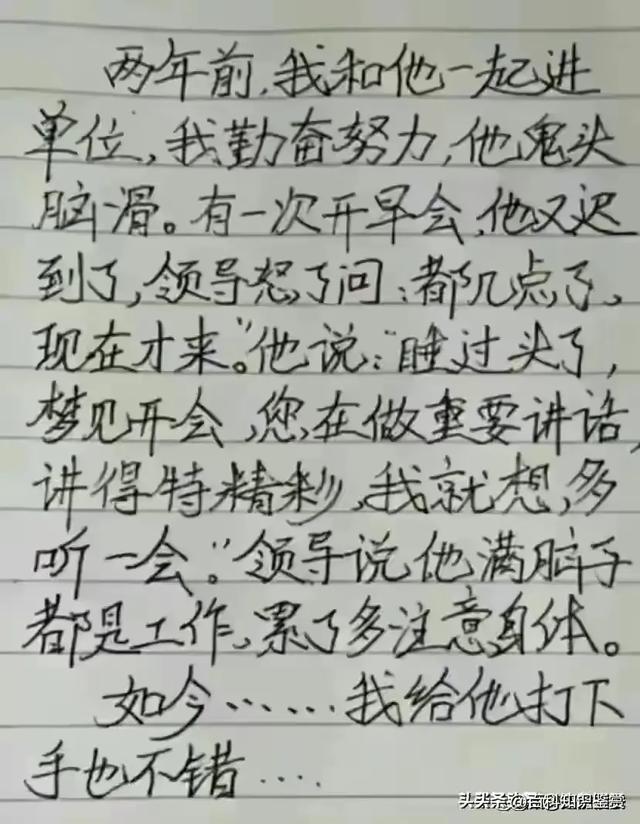 两年前,我和他一起进
单位,我勤奋努力,他鬼头
脑滑。有一次开早会,他又迟
到了,领导怒了问:都几点了,
现在才来。"他说:"睡过头了,
梦见开会,您在做重要讲话,
讲得特精彩,我就想,多
听一会。"领导说他满脑子
都是工作,累了多注意身体。
如今……我给他打下
手也不错….